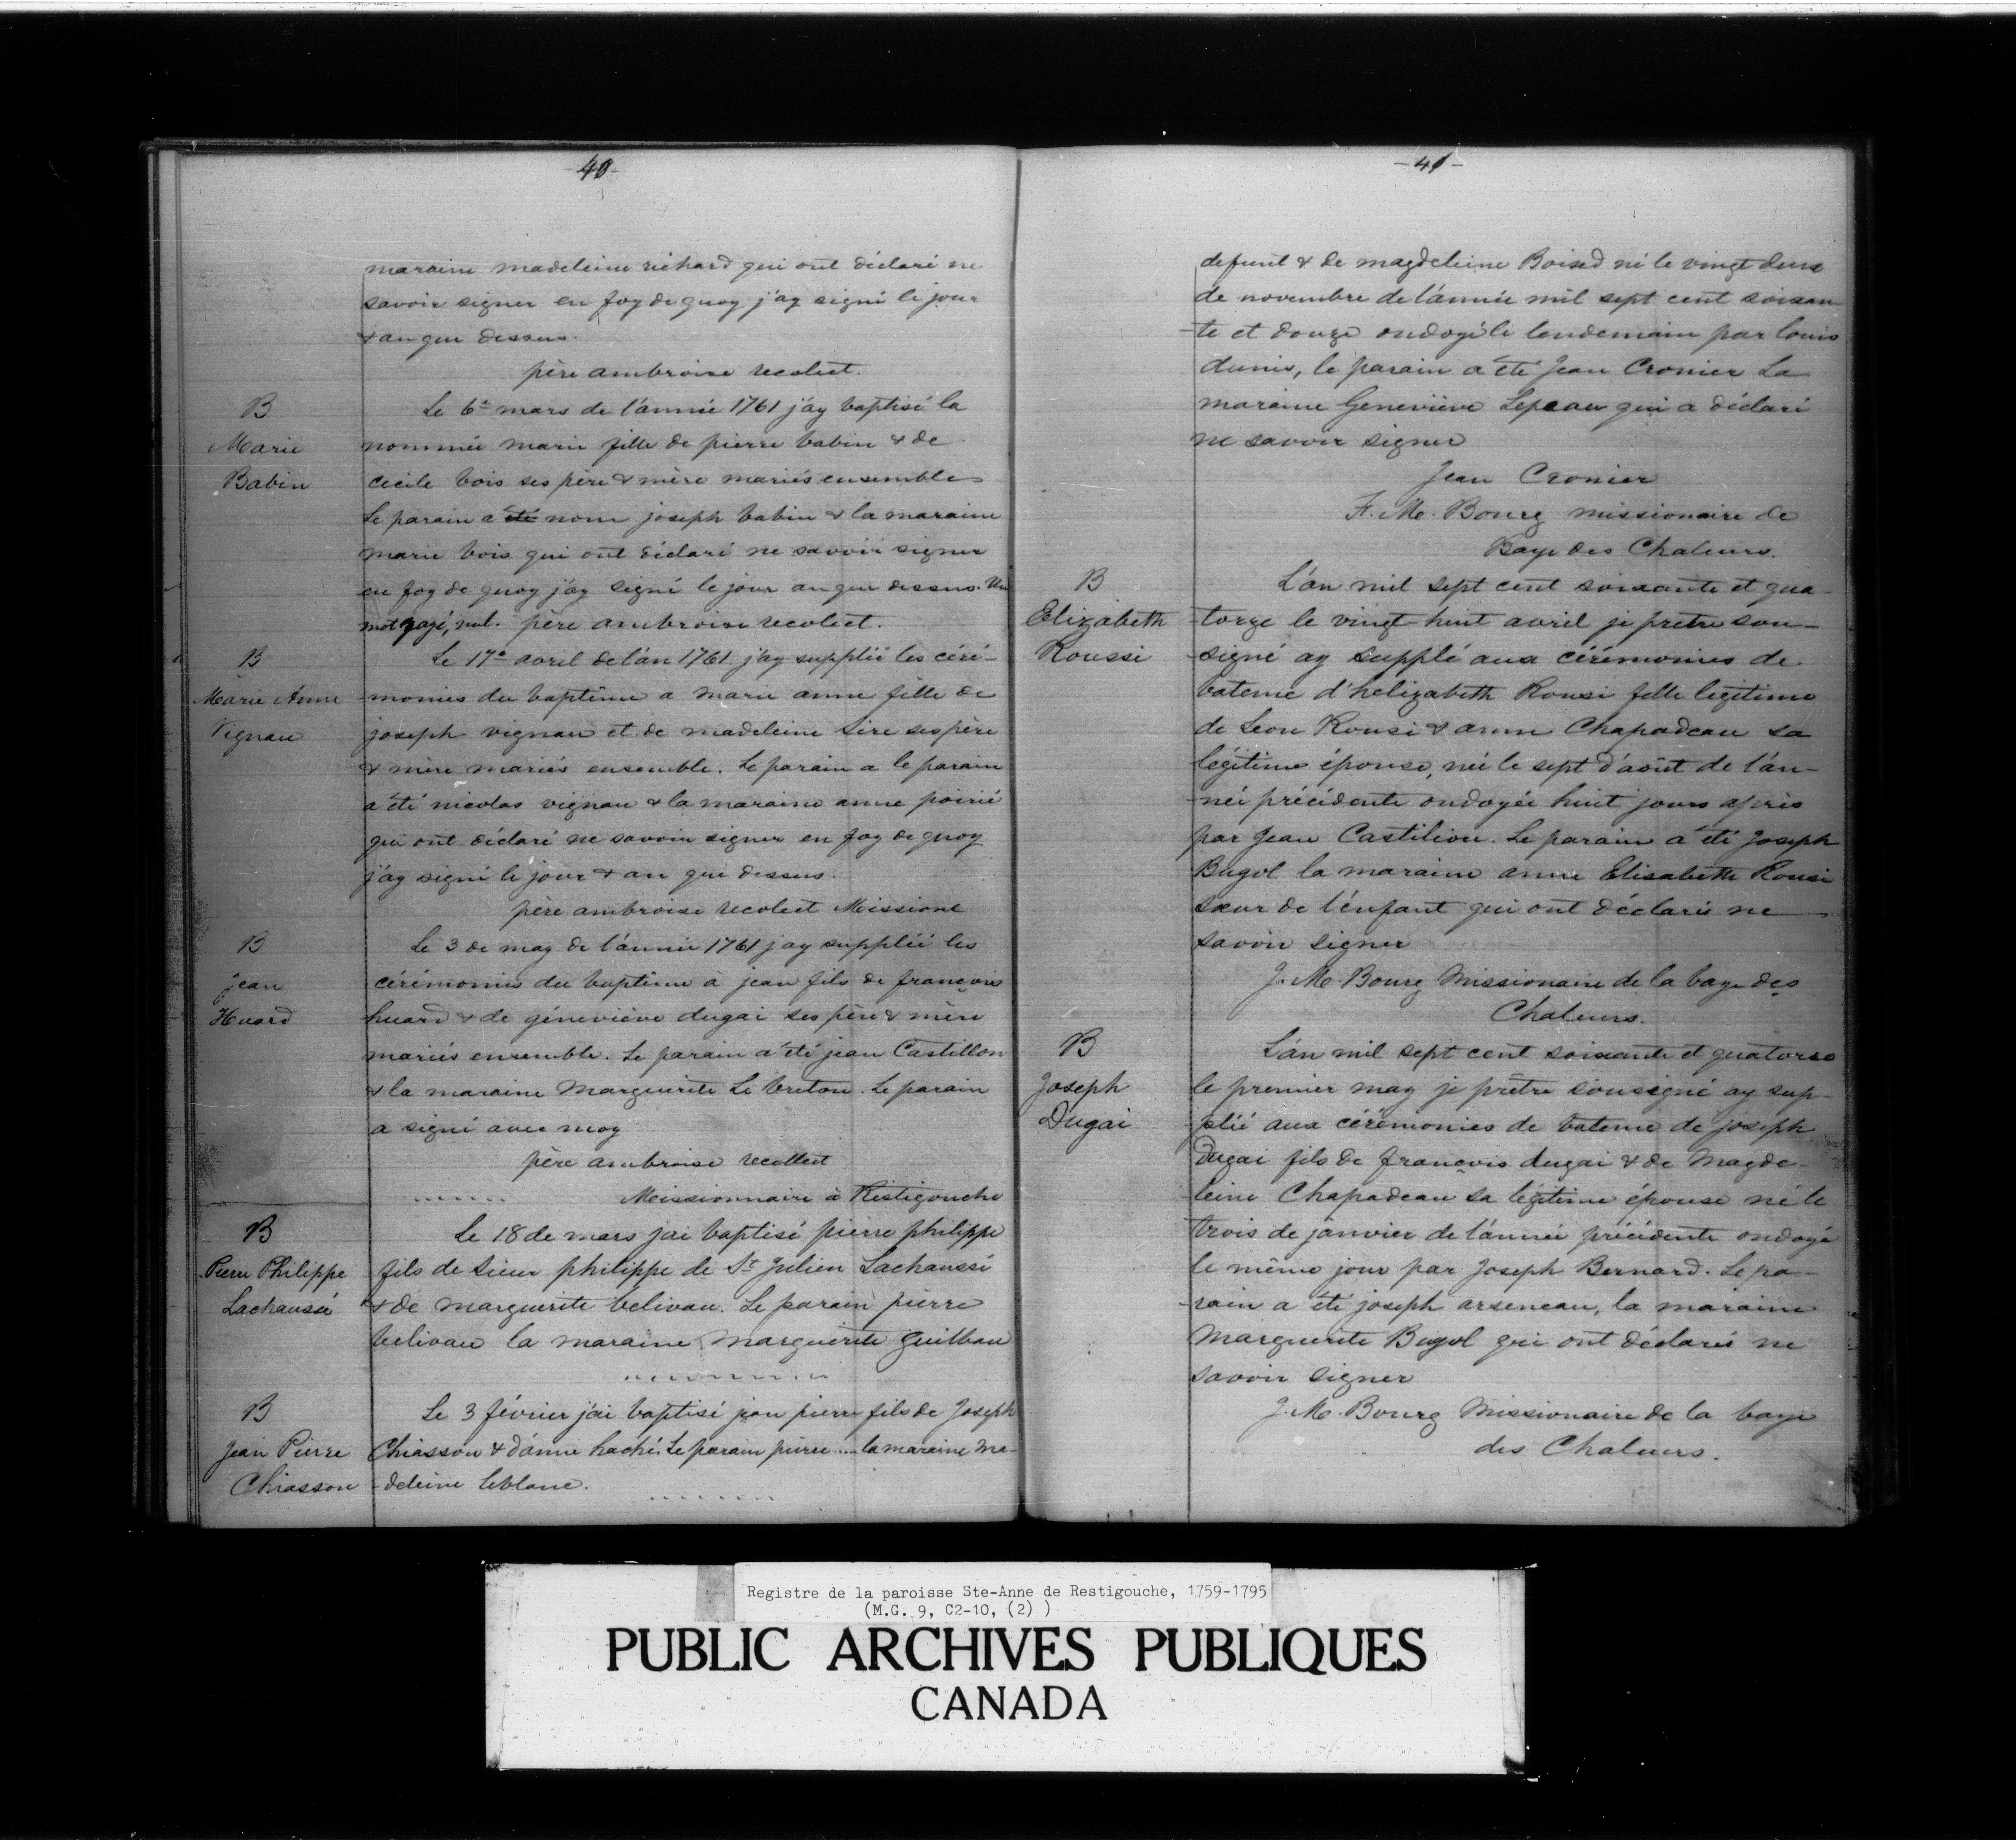 -40-
maraine madeleine richard qui ont déclaré ne
savoir signer en foy de quoy j'ay signé le jour
& an que dessus.
père ambroise recolect.
B
Marie
Babin
Le 6e mars de l'année 1761 j'ay baptisé la
nommée marie fille de pierre babin & de
cécile bois ses père & mère mariés ensemble
Le parain a été nom joseph babin & la maraine
marie bois qui ont déclaré ne savoir signer
en foy de quoy j'ay signé le jour an que dessus. Un
mot rayé, nul. père ambroise recolect.
B
Marie Anne
Vignau
Le 17e avril de l'an 1761 j'ay supplié les céré-
-monies du baptême a marie anne fille de
joseph vignau et de madeleine Sire ses père
& mère mariés ensemble. Le parain a le parain
a été nicolas vignau & la maraine anne poirié
qui ont déclaré ne savoir signer en foy de quoy
j'ay signé le jour & an que dessus.
père ambroise recolect Missione
B
jean
Huard
Le 3 de may de l'année 1761 j'ay supplié les
cérémonies du baptême à jean fils de françois
huard & de géneviève dugai ses père & mère
mariés ensemble. Le parain a été jean Castillon
& la maraine Marguerite Le breton. Le parain
a signé avec moy
père ambroise recollect
....... Missionnaire à Ristigouche
B
Pierre Philippe
Lachausée
Le 18 de mars j'ai baptisé pierre philippe
fils de Sieur philippe de St Julien Lachaussé
& de marguerite belivau. Le parain pierre
belivau la maraine marguerite guilbau
..........
B
Jean Pierre
Chiasson
Le 3 février j'ai baptisé jean pierre fils de Joseph
Chiasson & d'anne haché. Le parain pierre .... la maraine Ma-
-deleine leblanc.
.......
-41-
defunt & de magdeleine Boised né le vingt deux
de novembre de l'année mil sept cent soixan-
-te et douze ondoyé le lendemain par louis
dunis, le parain a été Jean Cronier La
maraine Geneviève Lepeau qui a déclaré
ne savoir signer
Jean Cronier
F. M. Bourg missionaire de
Baye des Chaleurs.
B
Elizabeth
Roussi
L'an mil sept cent soixante et qua-
-torze le vingt-huit avril je prêtre sou-
-signé ay supplé aux cérémonies de
bateme d'helizabeth Rousi fille legitime
de Leon Rousi & anne Chapadeau sa
légitime épouse, née le sept d'août de l'an-
-née précédente ondoyée huit jours après
par Jean Castilion. Le parain a été Joseph
Bugol la maraine anne Elisabeth Rousi
sœur de l'enfant qui ont déclarés ne
savoir signer
J. M. Bourg Missionaire de la baye des
Chaleurs.
B
Joseph
Dugai
L'an mil sept cent soixante et quatorse
le premier may je prêtre sousigné ay sup-
-plié aux cérémonies de bateme de joseph
Dugai fils de françois dugai & de Magde-
-leine Chapadeau sa légitime épouse né le
trois de janvier de l'année précédente ondoyé
le même jour par Joseph Bernard. Le pa-
-rain a été joseph arseneau, la maraine
Marguerite Bugol qui ont déclarés ne
savoir signer
J. M. Bourg Missionaire de la baye
des Chaleurs.
Registre de la paroisse Ste-Anne de Restigouche, 1759-1795
(M.G. 9, C2-10, (2) )
PUBLIC ARCHIVES PUBLIQUES
CANADA